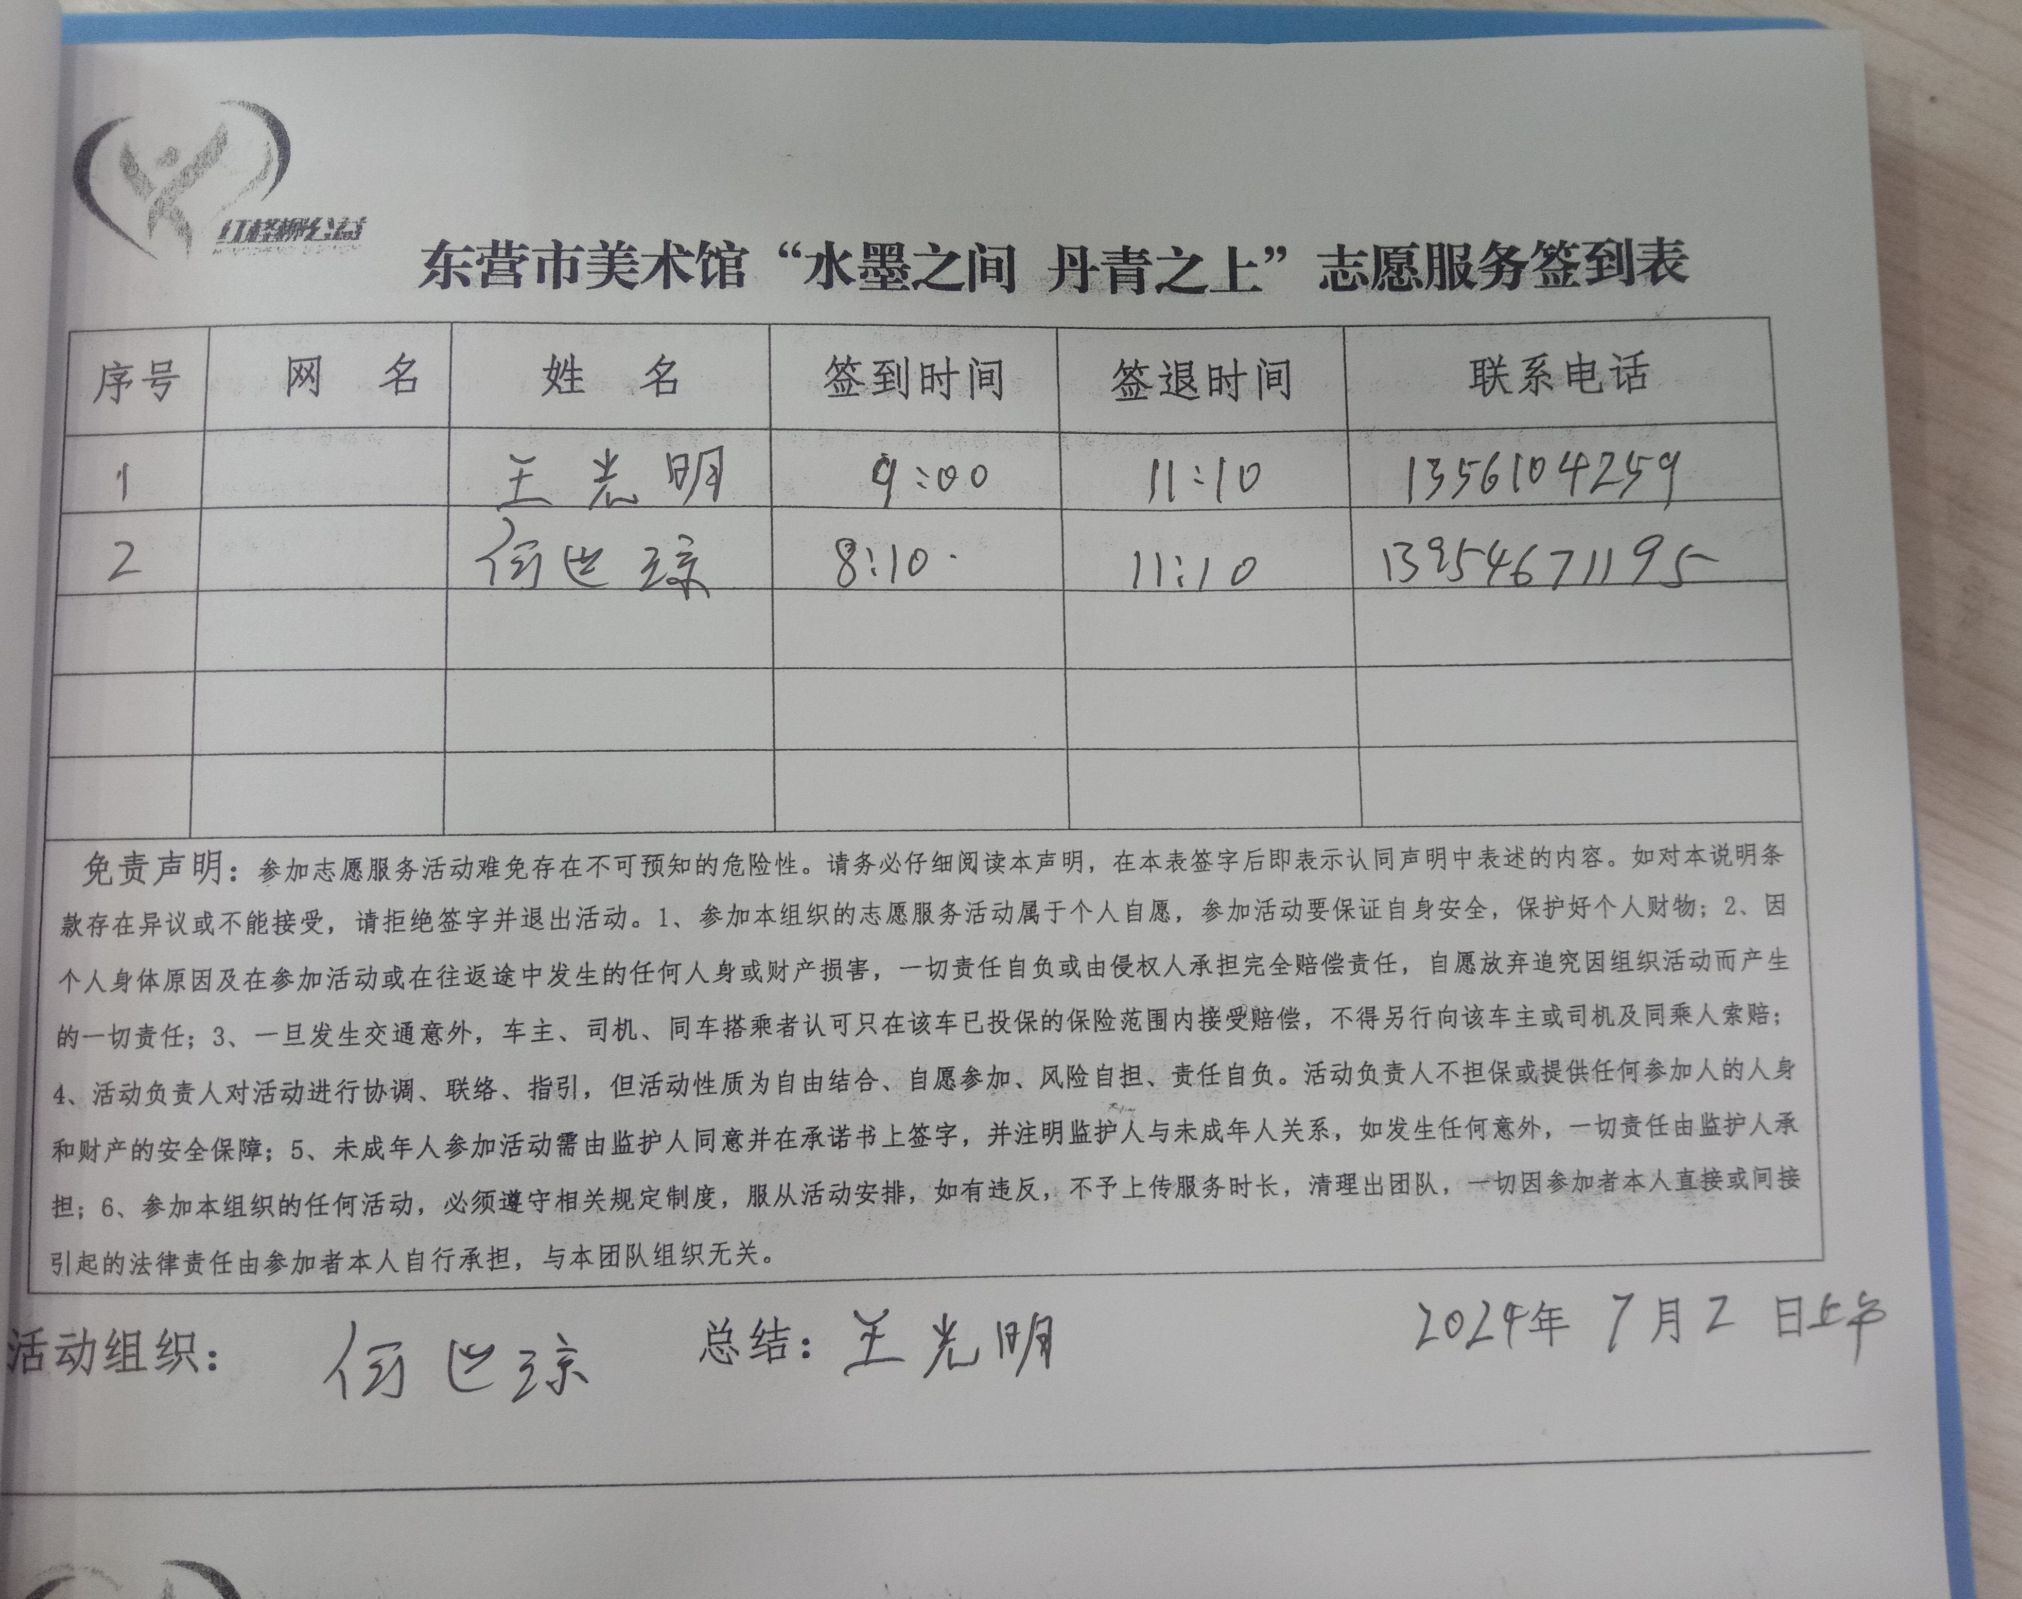 红柽柳公益
东营市美术馆“水墨之间 丹青之上”志愿服务签到表
序号 网 名 姓 名 签到时间 签退时间 联系电话
1 王光明 9:00 11:10 1356104259
2 何世琼 8:10 11:10 13954671195
免责声明：参加志愿服务活动难免存在不可预知的危险性。请务必仔细阅读本声明，在本表签字后即表示认同声明中表述的内容。如对本说明条
款存在异议或不能接受，请拒绝签字并退出活动。1、参加本组织的志愿服务活动属于个人自愿，参加活动要保证自身安全，保护好个人财物；2、因
个人身体原因及在参加活动或在往返途中发生的任何人身或财产损害，一切责任自负或由侵权人承担完全赔偿责任，自愿放弃追究因组织活动而产生
的一切责任；3、一旦发生交通意外，车主、司机、同车搭乘者认可只在该车已投保的保险范围内接受赔偿，不得另行向该车主或司机及同乘人索赔；
4、活动负责人对活动进行协调、联络、指引，但活动性质为自由结合、自愿参加、风险自担、责任自负。活动负责人不担保或提供任何参加人的人身
和财产的安全保障；5、未成年人参加活动需由监护人同意并在承诺书上签字，并注明监护人与未成年人关系，如发生任何意外，一切责任由监护人承
担；6、参加本组织的任何活动，必须遵守相关规定制度，服从活动安排，如有违反，不予上传服务时长，清理出团队，一切因参加者本人直接或间接
引起的法律责任由参加者本人自行承担，与本团队组织无关。
活动组织：何世琼 总结：王光明 2024年 7月2日上午